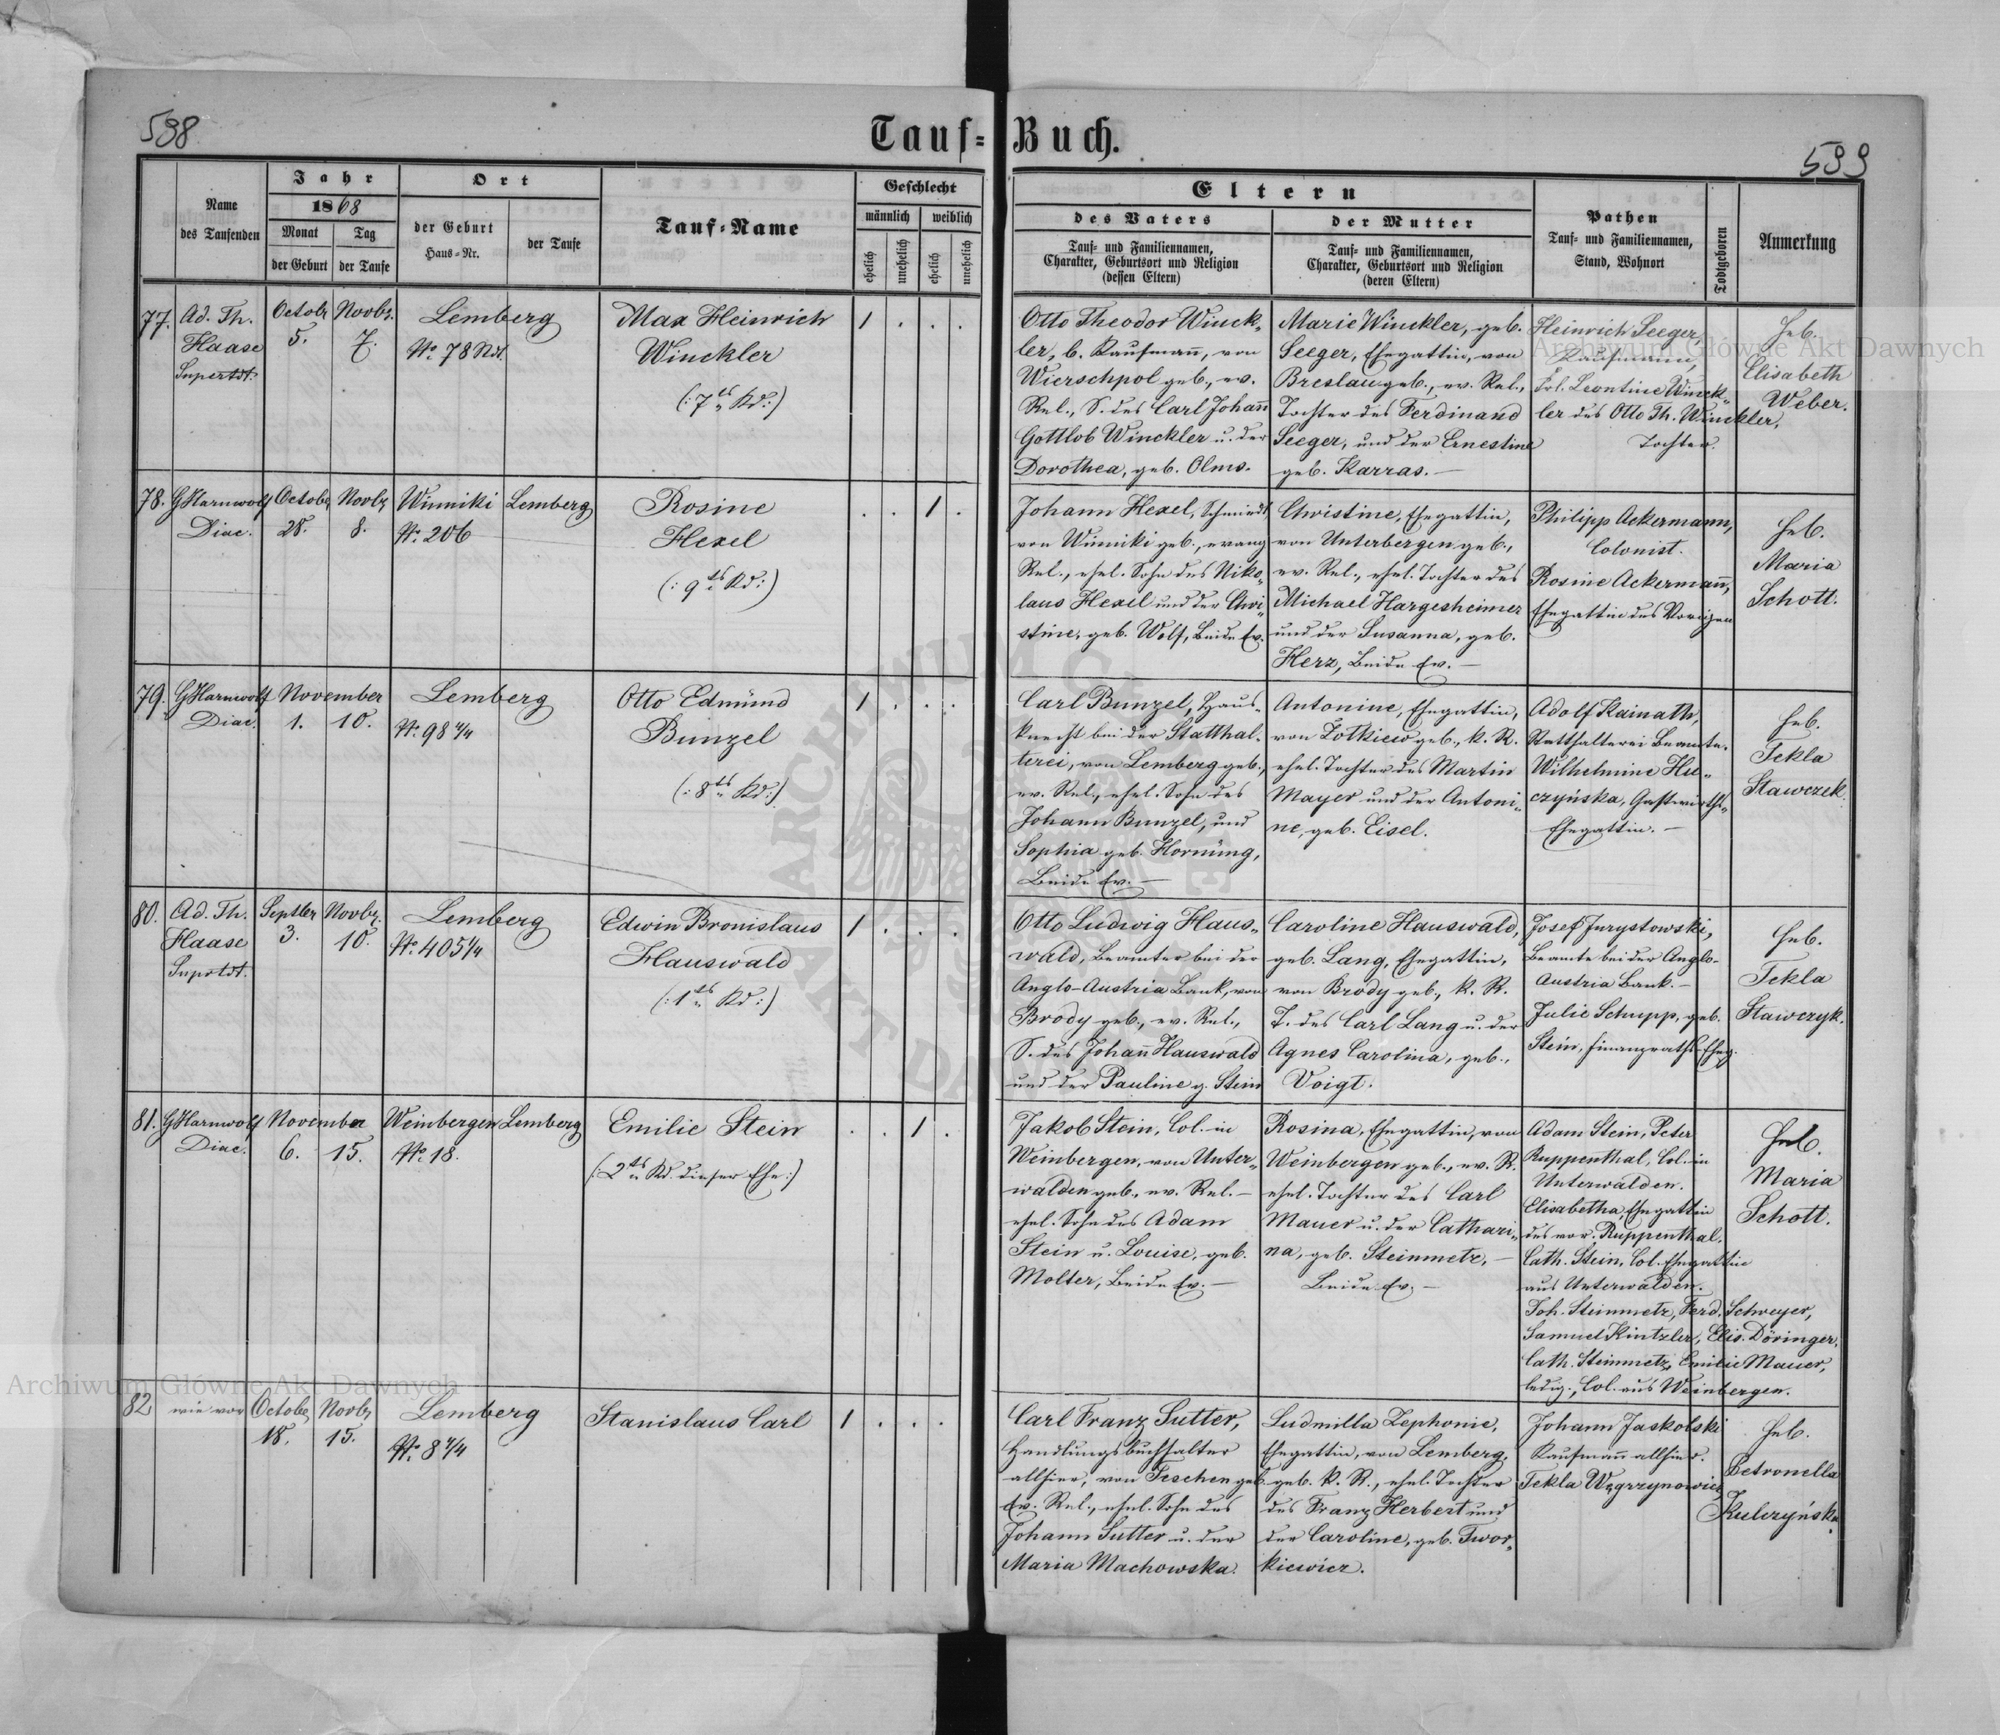 598.
Tauf-Buch.
599
Name
des Taufenden
Jahr
1868
Monat
der Geburt
Tag
der Taufe
Ort
der Geburt
Haus-Nr.
der Taufe
Tauf-Name
Geschlecht
männlich
weiblich
ehelich
unehelich
ehelich
unehelich
Eltern
des Vaters
Tauf- und Familiennamen,
Charakter, Geburtsort und Religion
(dessen Eltern)
der Mutter
Tauf- und Familiennamen,
Charakter, Geburtsort und Religion
(deren Eltern)
Pathen
Tauf- und Familiennamen,
Stand, Wohnort
Todtgeboren
Anmerkung
77.
Ad. Th.
Haase
Suprtdt.
Octobr
5.
Novbr.
7.
Lemberg
No. 78 Rdt.
Max Heinrich
Winckler
(: 7tes Kd :)
1 . . .
Otto Theodor Winck-
ler, b. Kaufmann, von
Wierschpol geb., ev.
Rel., S. des Carl Johann
Gottlob Winckler u. der
Dorothea, geb. Olms.
Marie Winckler, geb.
Seeger, Ehegattin, von
Breslau geb., ev. Rel.,
Tochter des Ferdinand
Seeger, und der Ernestine
geb. Karras. —
Heinrich Seeger,
Kaufmann,
Frl. Leontine Winck-
ler des Otto Th. Winckler,
Tochter.
Heb.
Elisabeth
Weber.
78.
GHarnwolf
Diac.
Octobe
28.
Novbr
8.
Winniki
No. 206
Lemberg
Rosine
Hexel
(: 9tes Kd :)
. . 1 .
Johann Hexel, Schmiedt
von Winniki geb., evang
Rel., ehel. Sohn des Niko-
laus Hexel und der Chri-
stine, geb. Wolf, Beide Ev.
Christine, Ehegattin,
von Unterbergen geb.,
ev. Rel., ehel. Tochter des
Michael Hargesheimer
und der Susanna, geb.
Herz, Beide Ev. —
Philipp Ackermann,
Colonist.
Rosine Ackermann,
Ehegattin des Vorigen
Heb.
Maria
Schott.
79.
GHarnwolf
Diac.
November
1. 10.
Lemberg
No. 98 4/4
Otto Edmund
Bunzel
(: 8tes Kd :)
1 . . .
Carl Bunzel, Haus-
knecht bei der Statthal-
terei, von Lemberg geb.,
ev. Rel., ehel. Sohn des
Johann Bunzel, und
Sophia geb. Hornung,
Beide Ev. —
Antonine, Ehegattin,
von Zolkiew geb., k. R.
ehel. Tochter des Martin
Mayer und der Antoni-
ne, geb. Eisel.
Adolf Kainath,
Statthalterei Beamte.
Wilhelmine Hu-
czyńska, Gastwirths-
Ehegattin. —
Heb.
Tekla
Stawczek.
80.
Ad. Th.
Haase
Suprtdt.
Septber
3.
Novbr.
10.
Lemberg
No. 405 1/4
Edwin Bronislaus
Hauswald
(: 1tes Kd :)
1 . . .
Otto Ludwig Haus-
wald, Beamter bei der
Anglo-Austria Bank, von
Brody geb., ev. Rel.,
S. des Johann Hauswald
und der Pauline g. Stein
Caroline Hauswald,
geb. Lang, Ehegattin,
von Brody geb., k. R.
T. des Carl Lang u. der
Agnes Carolina, geb.,
Voigt.
Josef Jurystowski,
Beamte bei der Anglo-
Austria Bank. —
Julie Schupp, geb.
Stein, Finanzraths-Eheg.
Heb.
Tekla
Stawczyk.
81.
GHarnwolf
Diac.
November
6. 15.
Weinbergen
No. 18.
Lemberg
Emilie Stein
(: 2tes Kd. dieser Ehe :)
. . 1 .
Jakob Stein, Col. in
Weinbergen, von Unter-
walden geb., ev. Rel. —
ehel. Sohn des Adam
Stein u. Louise, geb.
Molter, Beide Ev. —
Rosina, Ehegattin, von
Weinbergen geb., ev. R.
ehel. Tochter des Carl
Mauer u. der Cathari-
na, geb. Steinmetz, —
Beide Ev. —
Adam Stein, Peter
Ruppenthal, Col. in
Unterwalden.
Elisabetha, Ehegattin
des vor. Ruppenthal.
Cath. Stein, Col. Ehegattin
aus Unterwalden.
Joh. Steinmetz, Ferd. Schweyer,
Samuel Kintzler, Elis. Döringer,
Cath. Steinmetz, Emilie Mauer,
ledig., Col. aus Weinbergen.
Heb.
Maria
Schott.
82
wie vor
Octobe
18.
Novbr
15.
Lemberg
No. 8 4/4
Stanislaus Carl
1 . . .
Carl Franz Sutter,
Handlungsbuchhalter
allhier, von Teschen geb.
Ev. Rel., ehel. Sohn des
Johann Sutter u. der
Maria Machowska.
Ludmilla Zephonie,
Ehegattin, von Lemberg,
geb. k. R., ehel. Tochter
des Franz Herbert und
der Caroline, geb. Twor-
kiewicz.
Johann Jaskolski
Kaufmann allhier.
Tekla Węgrzynowicz
Heb.
Petronella
Kulczyńska.
Archiwum Główne Akt Dawnych
Archiwum Główne Akt Dawnych